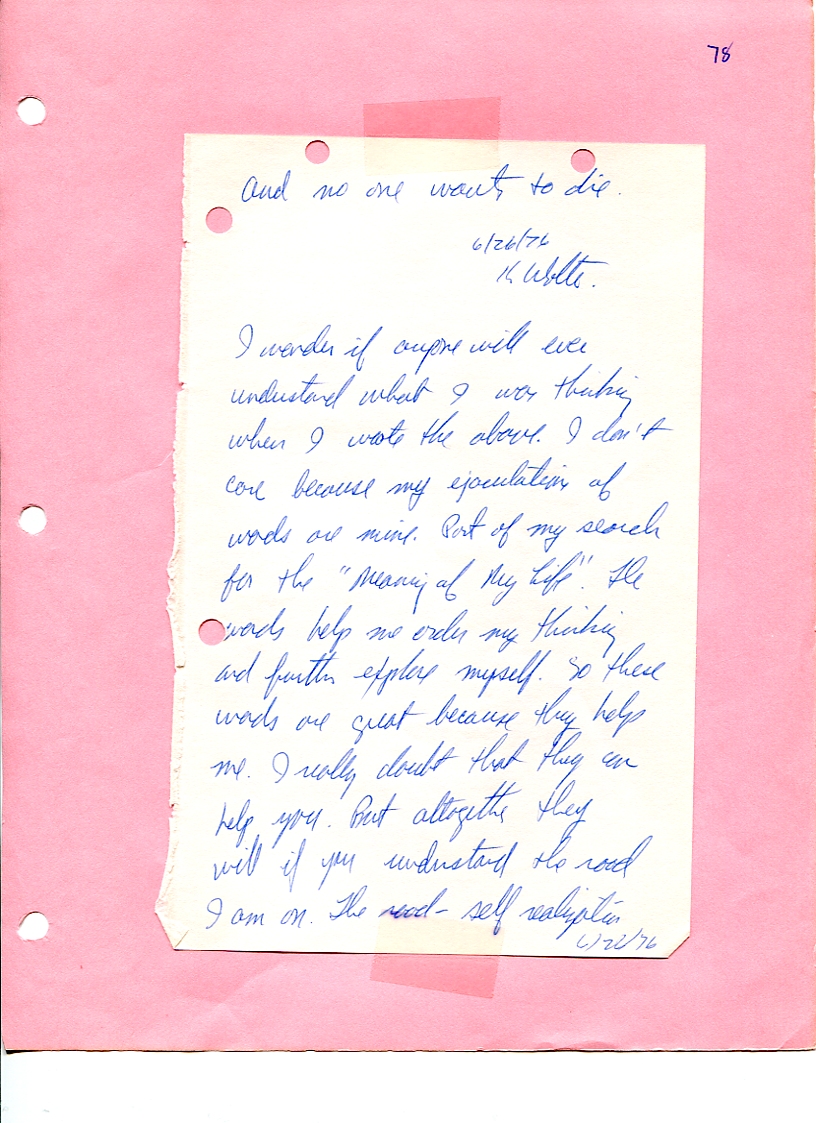 78
And no one wants to die.
6/26/76
K Wolte.
I wonder if anyone will ever
understand what I was thinking
when I wrote the above. I don't
care because my ejaculations of
words are mine. Part of my search
for the "Meaning of My Life". The
words help me order my thinking
and further explore myself. So these
words are great because they help
me. I really doubt that they can
help you. But altogether they
will if you understand the road
I am on. The road - self realization